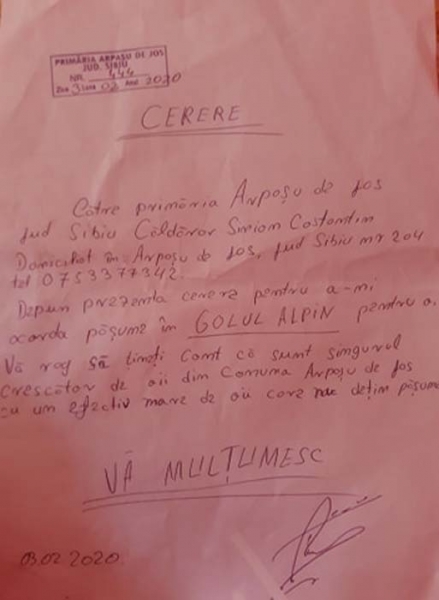 PRIMĂRIA ARPAȘU DE JOS
JUD. SIBIU
NR. 444
Ziua 3 Luna 02 Anul 2020
CERERE
Către primăria Arpașu de Jos
Jud Sibiu Căldărar Simion Costantin
Domiciliat în Arpașu de Jos, Jud Sibiu nr 204
tel 0753377342.
Depun prezenta cerere pentru a-mi
acorda pășune în GOLUL ALPIN pentru oi,
Vă rog să țineți cont că sunt singurul
crescător de oii din Comuna Arpașu de Jos
cu un efectiv mare de oii care nu dețin pășune
VĂ MULȚUMESC
03.02.2020